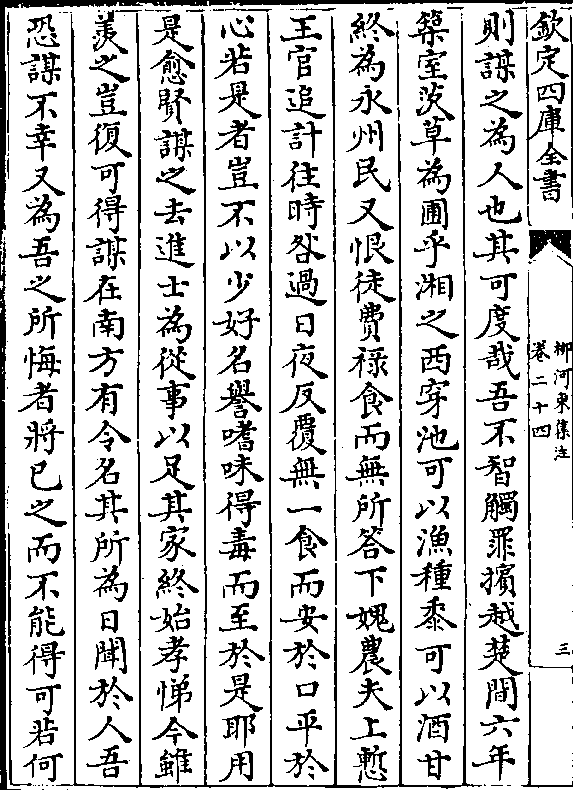 欽定四庫全書
柳河東集注
卷二十四
三
則謀之為人也其可度哉吾不智觸罪擯越楚間六年
築室茨草為圃乎湘之西穿池可以漁種黍可以酒甘
終為永州民又恨徒費禄食而無所答下媿農夫上慙
王官追計徃時咎過日夜反覆無一食而安於口平於
心若是者豈不以少好名譽嗜味得毒而至於是耶用
是愈賢謀之去進士為從事以足其家終始孝悌今雖
羨之豈復可得謀在南方有令名其所為日聞於人吾
恐謀不幸又為吾之所悔者將已之而不能得可若何